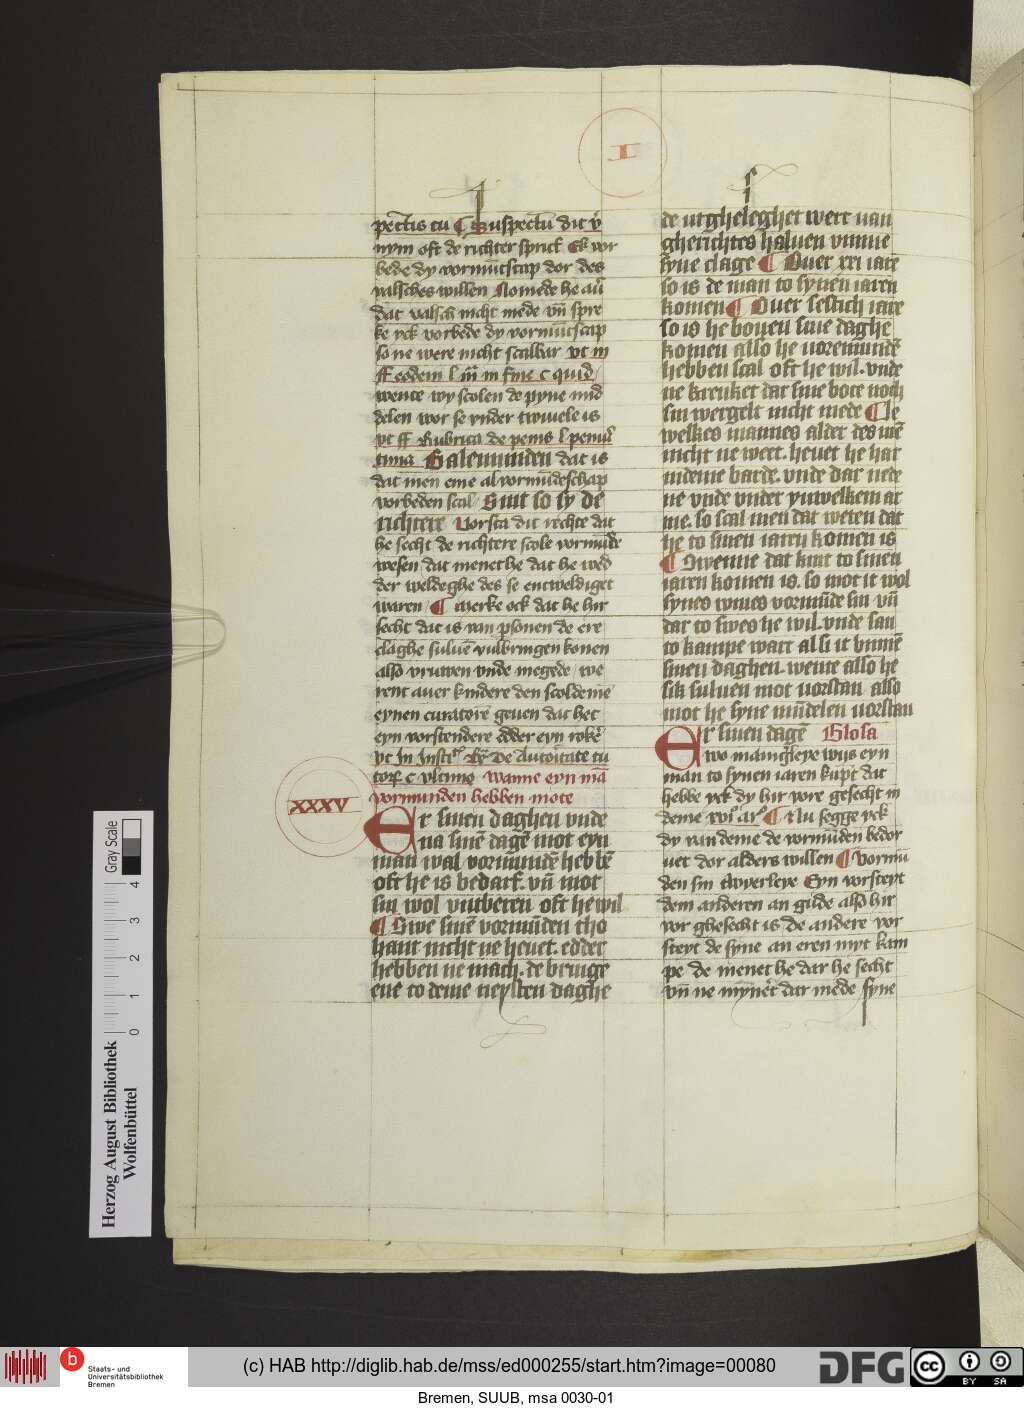 I
pectis tu ¶ Suspectū dit vͦ
nym oft de richter sprict Ek vor
bede dy vormūtscap dor des
valsches willen Nomede he au̅
dat valsch nicht mede vn̄ spre
ke yck vorbede dy vormūtscap
so ne were nicht scalbar vt in
ff eodem l in fine c quid
wente wy scolen de pyne mid
delen wor se ynder twiuele is
vt ff Rubrica de penis l penul
tima Balemunden dat is
dat men eme al vormūdeschap
vorbeden scal Sint so sy de
richtere Vorsta dit rechte dat
he secht de richtere scole vormūde
wesen dat menet he dat he wed
der weldeghe des se entweldiget
waren ¶ Merke ock dat he hir
secht dat is van psonen de ere
claghe suluē vulbringen konen
also vruwen vnde megede we
rent auer kindere den scoldeme
eynen curatorē geuen dat het
eyn vorstendere edder eyn
vt In Instit De Autoritate tu
c vltimo Wanne eyn mā
vormunden hebben mote
XXXV
Er sinen daghen vnde
na sinē dagē mot eyn
man wal vormundē hebbē
oft he is bedarf. vn̄ mot
sin wol vntberen oft he wil
¶ Swe sinē vormūden tho
hant nicht ne heuet. edder
hebben ne mach. de bringe
ene to deme neysten daghe
de utgheleghet wert van
gherichtes haluen vmme
syne clage ¶ Ouer xxi iare
so is de man to synen iaren
komen ¶ Ouer sestich iare
so is he bouen sine daghe
komen also he uoremundē
hebben scal oft he wil. vnde
ne krenket dar sine bote noch
sin wergelt nicht mede ¶ Je
welkes mannes alder des mē
nicht ne wert. heuet he har
indeme barde. vnde dar nede
ne vnde vnder yuwelkem ar
me. so scal men dat weten dat
he to sinen iaren komen is
¶ Swenne dat kint to sinen
iaren komen is. so mot it wol
synes wiues vormūde sin vn̄
dar to swes he wil. vnde san
to kampe wart al si it binnē
sinen daghen. wente also he
sik suluen mot uorstan also
mot he syne mūdelen uorstan
Er sinen dagē Glosa
two mangherleye wijs eyn
man to synen iaren kūpt dat
hebbe yck dy hir vore gesecht in
deme xvi ar ¶ Nu segge yck
dy van deme de vormūden bedor
uet dor alders willen ¶ Vormū
den sin twyerleye Eyn vorsteyt
dem anderen an gūde also hir
vor ghesecht is De andere vor
steyt de syne an eren myt kam
pe de menet he dar he secht
vn̄ ne mynert dar mede syne
Gray Scale
0 1 2 3 4
Herzog August Bibliothek
Wolfenbüttel
b
Staats- und
Universitätsbibliothek
Bremen
(c) HAB http://diglib.hab.de/mss/ed000255/start.htm?image=00080
DFG
cc BY SA
Bremen, SUUB, msa 0030-01